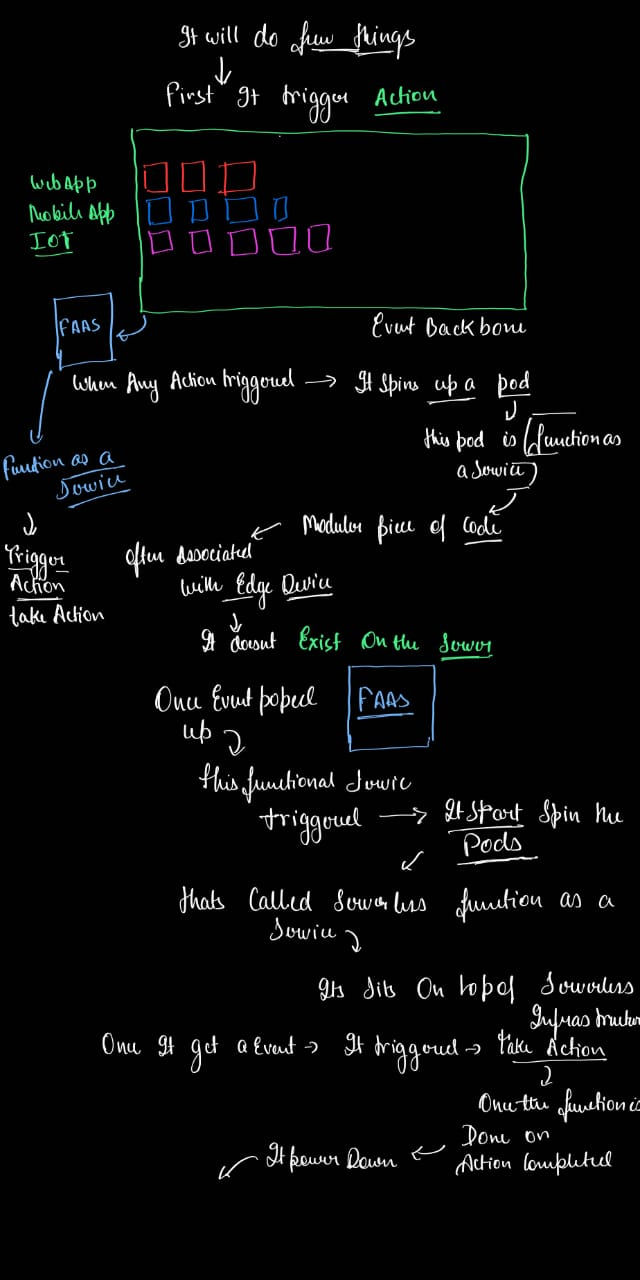 It will do few things
First It trigger Action
WebApp
Mobile App
IOT
FAAS
Event Backbone
When Any Action triggered → It spins up a pod
this pod is (function as
a service)
Function as a
Service
Modular piece of code
Trigger
Action
take Action
often Associated
with Edge Device
It doesnt Exist On the Server
Once Event poped
up
FAAS
this functional service
triggered → It start spin the
Pods
thats Called Serverless function as a
service
Its sits On top of Serverless
Infrastructure
Once It get a Event → It triggered → take Action
Once the function is
Done on
Action Completed
It power Down